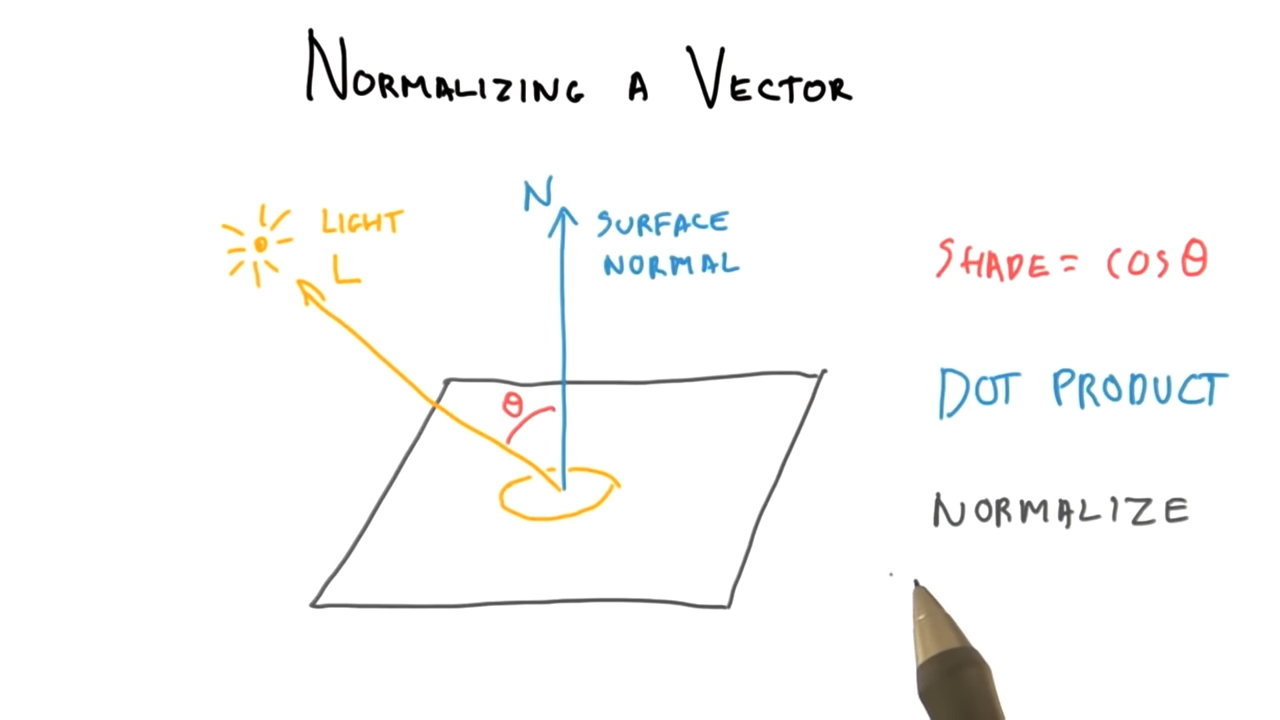 NORMALIZING A VECTOR
LIGHT
L
N
SURFACE
NORMAL
θ
SHADE = COS θ
DOT PRODUCT
NORMALIZE